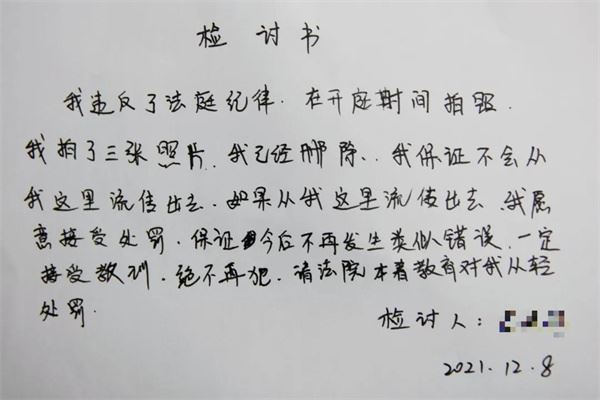 检讨书
我违反了法庭纪律.在开庭时间拍照.
我拍了三张照片.我已经删除..我保证不会从
我这里流传出去.如果从我这里流传出去.我愿
意接受处罚.保证今后不再发生类似错误.一定
接受教训.绝不再犯.请法院本着教育对我从轻
处罚.
检讨人:
2021.12.8